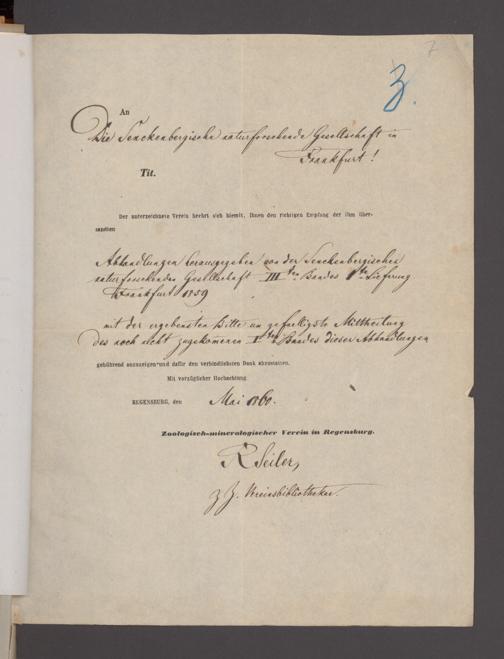 7
3.
An
Die Senckenbergische naturforschende Gesellschaft in
Frankfurt!
Tit.
Der unterzeichnete Verein beehrt sich hiemit, Ihnen den richtigen Empfang der ihm über-
sandten
Abhandlungen herausgegeben von der Senckenbergischen
naturforschenden Gesellschaft III ten Bandes 1 te Lieferung
Frankfurt 1859
mit der ergebensten Bitte um gefälligste Mittheilung
des noch nicht zugekommenen I ten Bandes dieser Abhandlungen
gebührend anzuzeigen und dafür den verbindlichsten Dank abzustatten.
Mit vorzüglicher Hochachtung
REGENSBURG, den Mai 1860.
Zoologisch-mineralogischer Verein in Regensburg.
R Seiler,
z. Z. Vereinsbibliothekar.